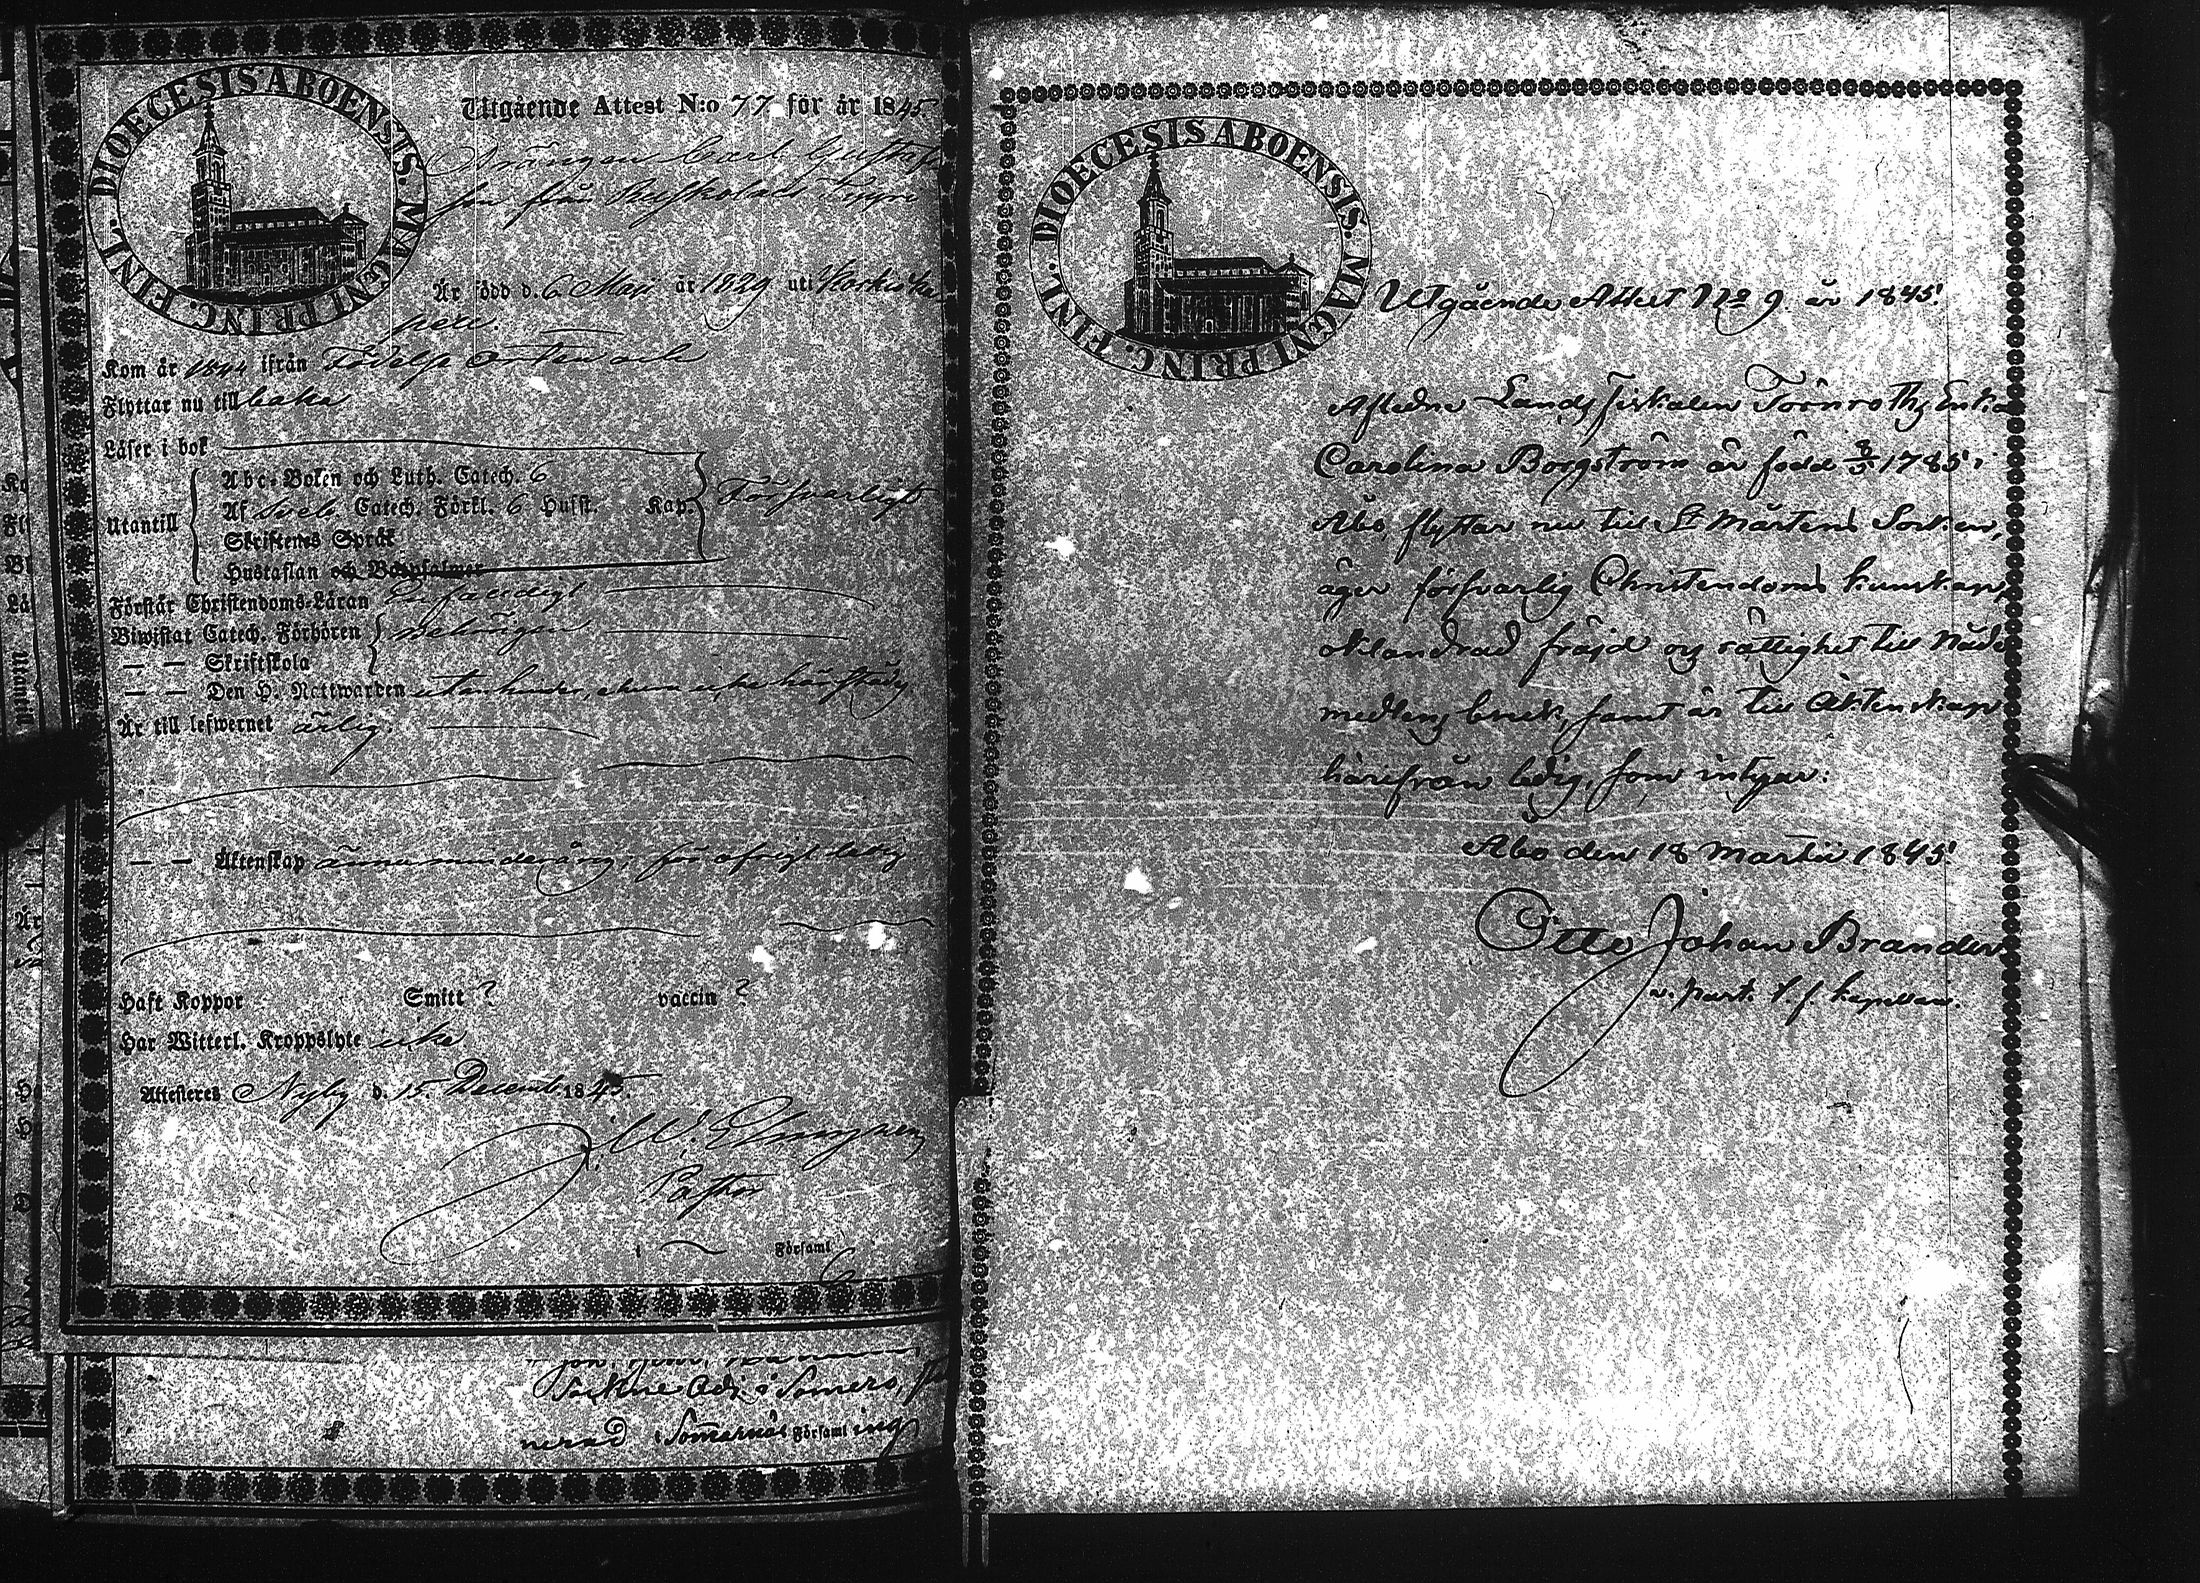 DIOECESIS ABOENSIS. MAGNI PRINC. FINL.
Utgående Attest N:o 77 för år 1845.
Drängen Carl Gustafs
son från
Är född d. 6 Maji år 1829 uti Koskis Ka
pell.
Kom år 1844 ifrån Födelse orten och
Flyttar nu till baka
Läser i bok
Utantill
Abc-Boken och Luth. Catech. 6
Af Sveb. Catech. Förkl. 6 Husst. Kap.
Försvarligt
Skriftenes Språk
Hustaflan och Botpsalmer
Förstår Christendoms-Läran
Biwistat Catech. Förhören behörigen
— — Skriftskola
— — Den H. Nattwarden utan hinder, ehuru icke härstädes
Är till lefwernet ärlig.
— — Äktenskap ännu minderårig, för öfrigt ledig
Haft Koppor Smitt ? vaccin ?
Har Witterl. Kroppslyte icke
Attesteres Nyby d. 15. Decemb. 1845.
J. W. Elmgren
Pastor
i Församl
Sockne Adj. i Somero,
nerad i Somernäs Församling
DIOECESIS ABOENSIS. MAGNI PRINC. FINL.
Utgående Attest No 9 år 1845.
Afledne Lands Fiskalen Törnroths Enka
Carolina Borgström är född 1785 i
Åbo, flyttar nu till St Mårtens Socken,
äger försvarlig Christendoms kunskap,
oklandrad fräjd og rättighet till Nåde
medlens bruk, samt är till Äktenskap
härifrån ledig, som intygar:
Åbo den 18 Martii 1845.
Otto Johan Brander
v. past. t. f. kapellan.